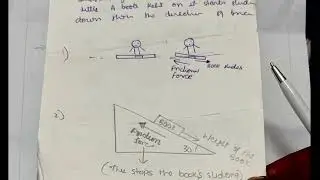 little. A book kept on it starts sliding
down from the direction of force
1)
Frictional
Force
Book slides
2)
Book
Friction
force
Weight of the
Book
30
(This stops the book's sliding)